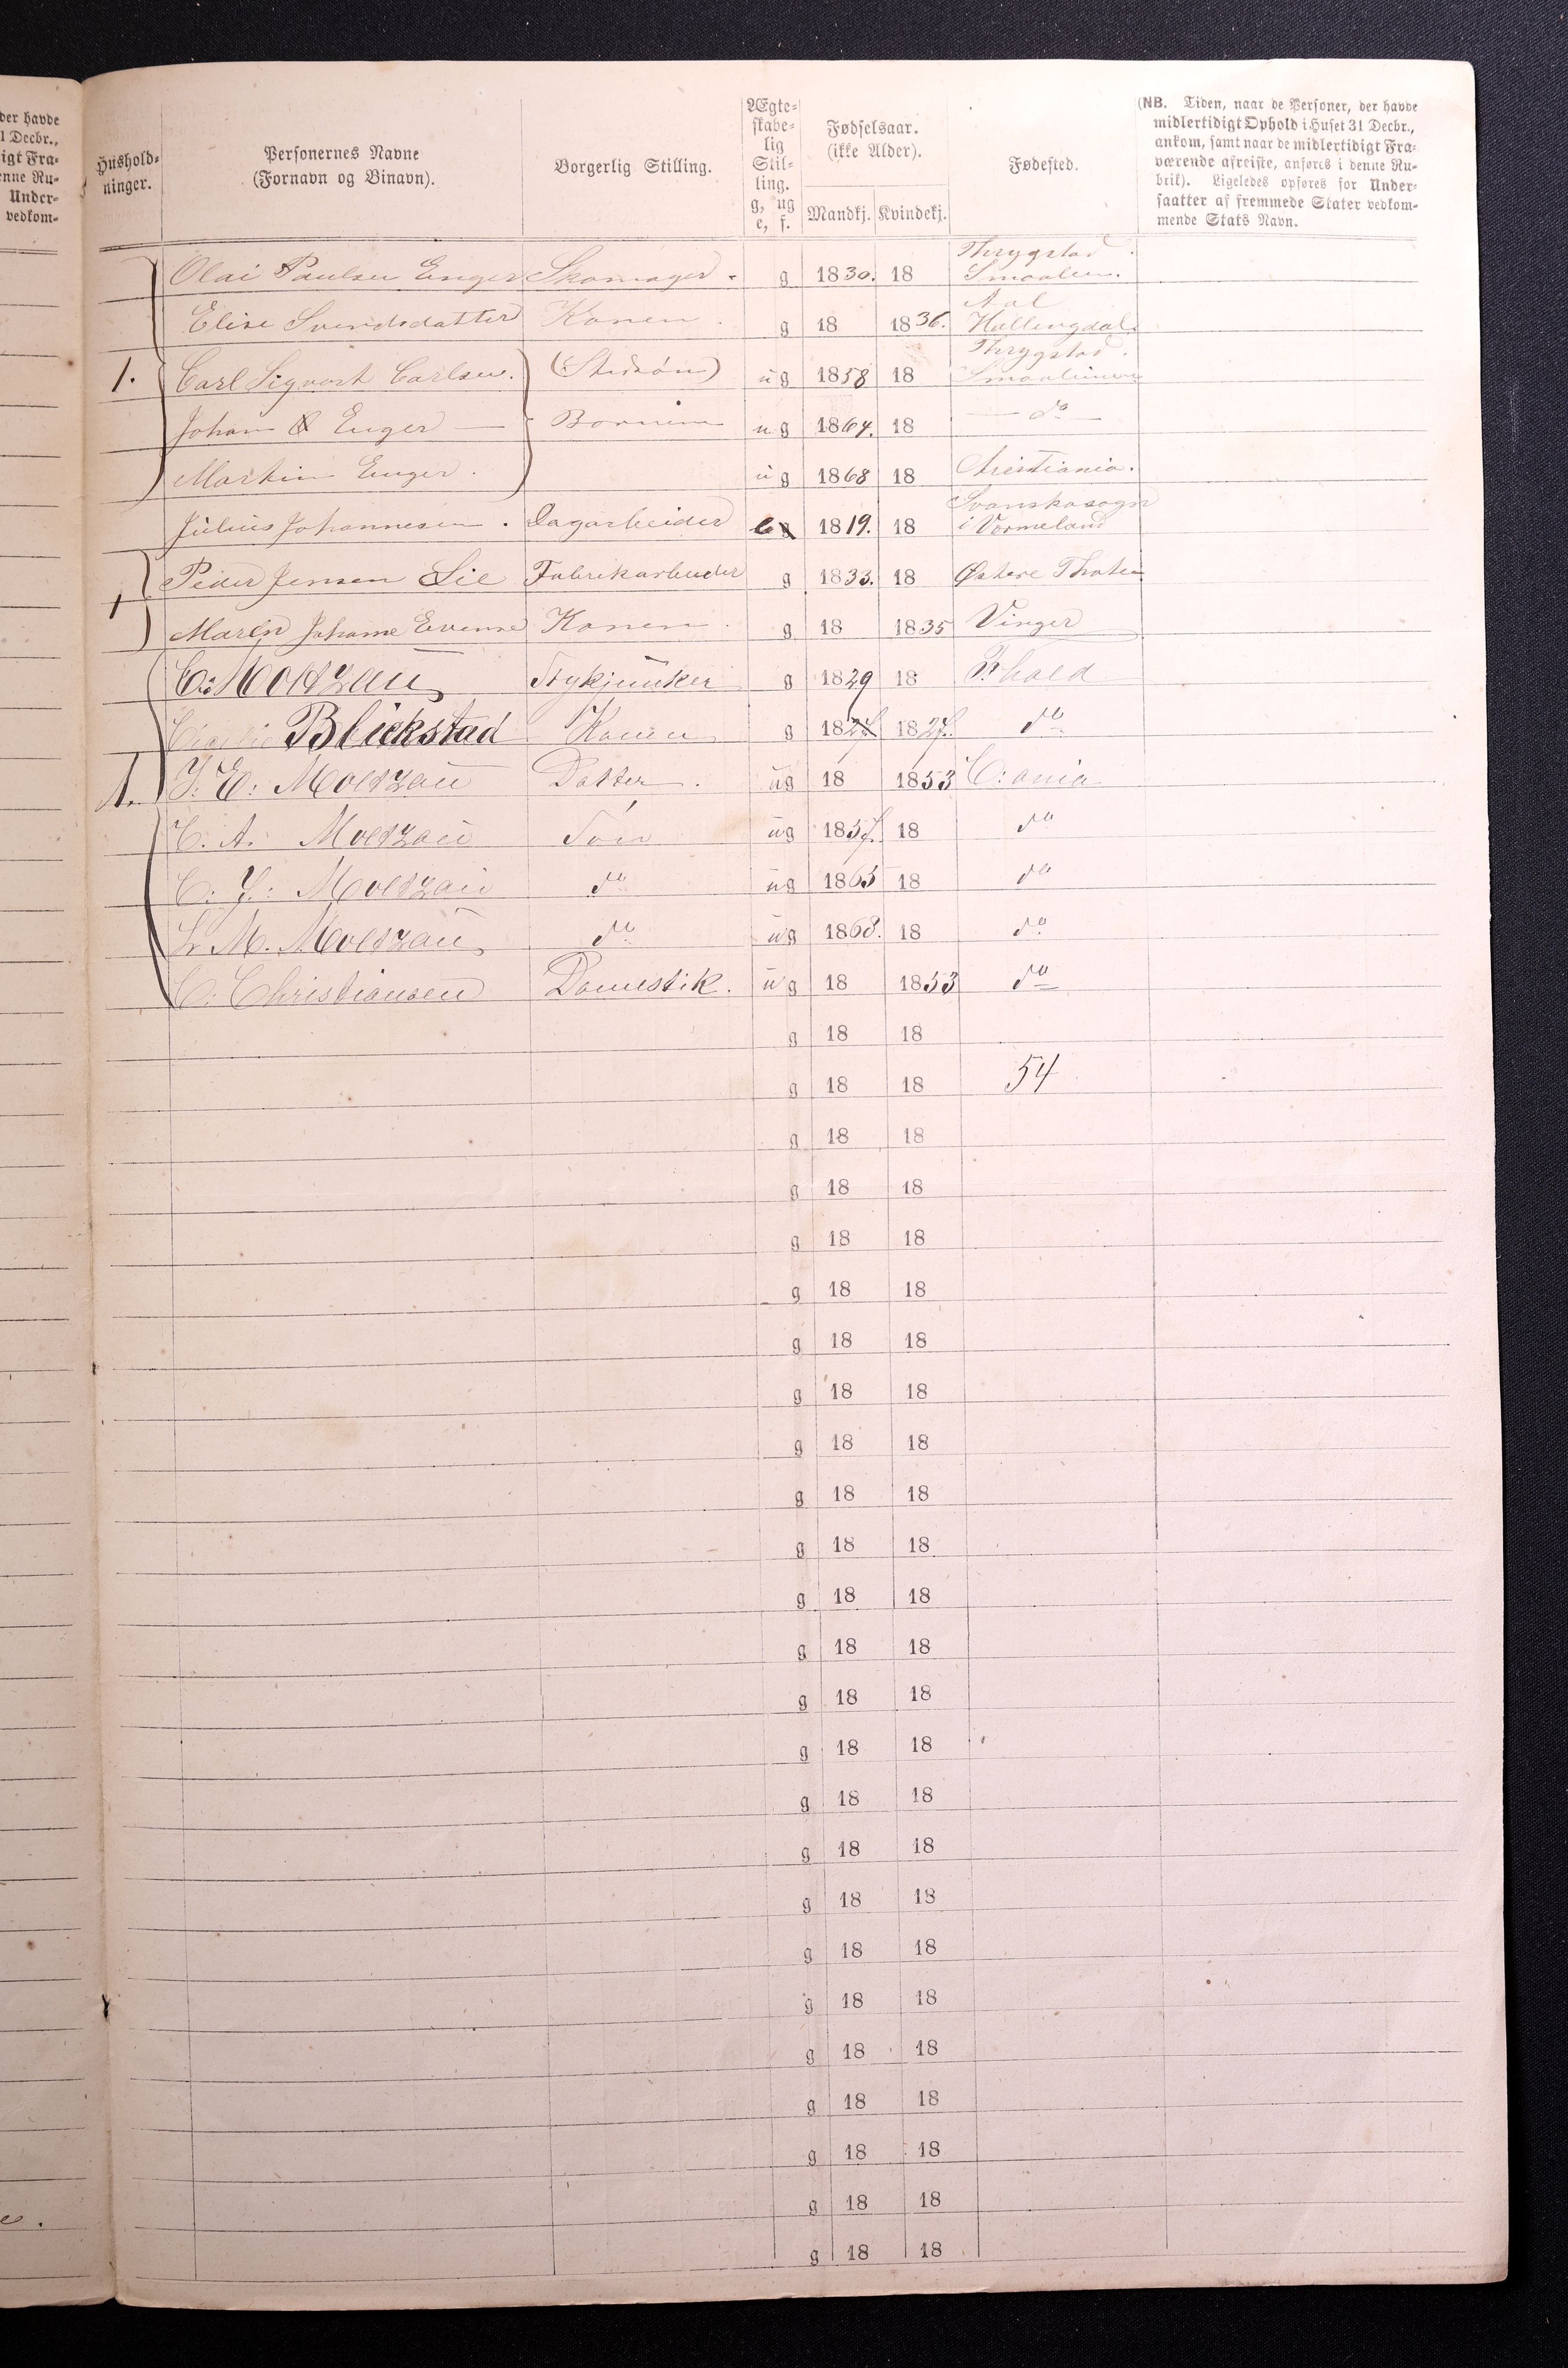 der havde
1 Decbr.,
igt Fra=
enne Ru=
Under=
vedkom=
Hushold=
ninger.
Personernes Navne
(Fornavn og Binavn).
Borgerlig Stilling.
Ægte=
skabe=
lig
Stil=
ling.
g, ug
e, f.
Fødselsaar.
(ikke Alder).
Mandkj. Kvindekj.
Fødested.
(NB. Tiden, naar de Personer, der havde
midlertidigt Ophold i Huset 31 Decbr.,
ankom, samt naar de midlertidigt Fra=
værende afreiste, anføres i denne Ru=
brik). Ligeledes opføres for Under=
saatter af fremmede Stater vedkom=
mende Stats Navn.
Thrygstad
Olai Paulsen Enger Skomager g 1830. 18 Smaalen.
Aal
Elise Svendsdatter Konen g 18 1836. Hallingdal
Thrygstad.
1. Carl Sigvart Carlsen. (Stedsøn) ug 1858 18 Smaalenene
Johan Enger Børnene ug 1864. 18 do
Martin Enger. ug 1868 18 Christiania.
Svanskasogn
Julius Johannesen. Dagarbeider e 1819. 18 i Vermeland
Peder Jensen Lie Fabrikarbeider g 1833. 18 Østere Thoten
1 Maren Johanne Evense Konen g 18 1835 Vinger
C: Moltzau Stykjunker g 1829 18 Frhald
Blickstad Konen g 1827 1827. do
1. J. E. Moltzau Datter. ug 18 1853 C:ania
C. A. Moltzau Søn ug 1857. 18 do
C. J. Moltzau do ug 1865 18 do
L. M. Moltzau do ug 1868. 18 do
C. Christiansen Domestik. ug 18 1853 do
g 18 18
g 18 18 54
g 18 18
g 18 18
g 18 18
g 18 18
g 18 18
g 18 18
g 18 18
g 18 18
g 18 18
g 18 18
g 18 18
g 18 18
g 18 18
g 18 18
g 18 18
g 18 18
g 18 18
g 18 18
g 18 18
g 18 18
g 18 18
g 18 18
g 18 18